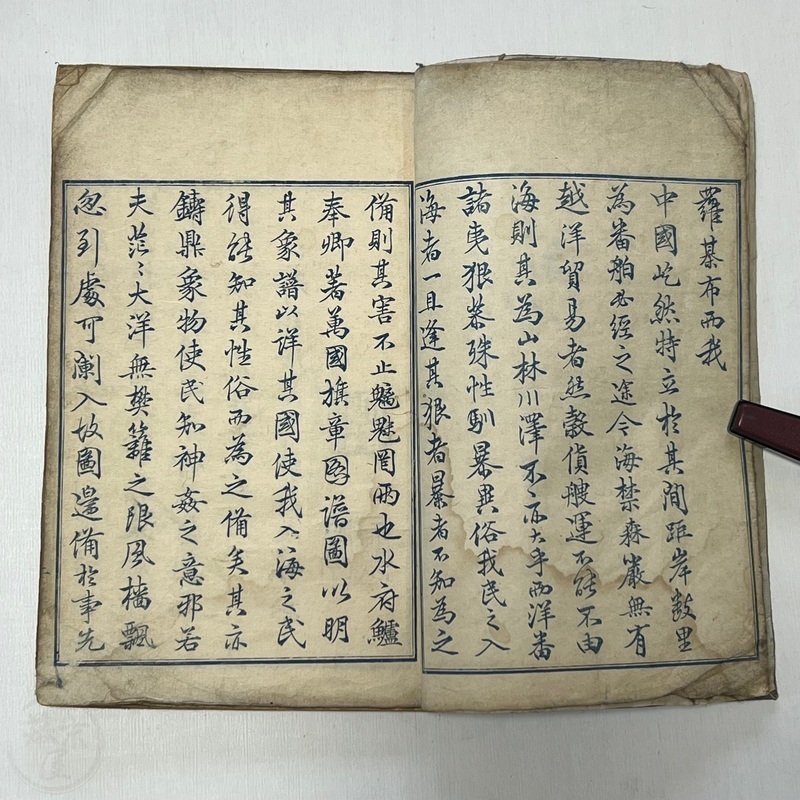 羅棊布而我
中國屹然特立於其間距岸數里
為番舶必經之途今海禁森嚴無有
越洋貿易者然穀貨艘運不能不由
海則其為山林川澤不亦大乎西洋番
諸夷狠恭殊性馴暴異俗我民之入
海者一旦逢其狠者暴者不知為之
備則其害不止魑魅罔兩也水府鱸
奉卿著萬國旗章圖譜圖以明
其象譜以詳其國使我入海之民
得能知其性俗而為之備矣其亦
鑄鼎象物使民知神姦之意邪若
夫茫〻大洋無樊籬之限風檣飄
忽到處可闌入故圖邊備於事先